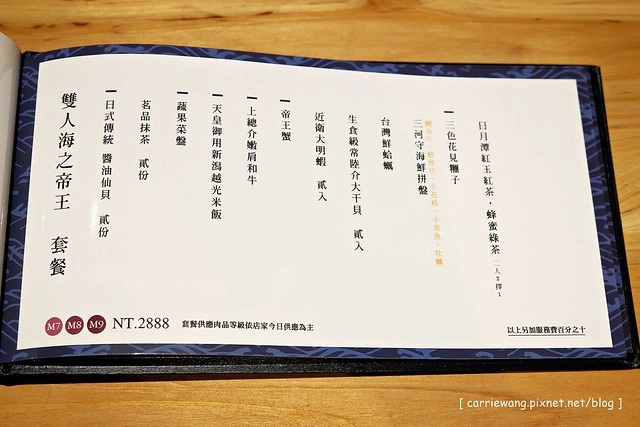 日月潭紅玉紅茶・蜂蜜綠茶 二人2擇1
三色花見糰子
小章魚・牡蠣
三河守海鮮拼盤
台灣鮮蛤蠣
生食級常陸介大干貝 貳入
近衛大明蝦 貳入
帝王蟹
上總介嫩肩和牛
天皇御用新潟越光米飯
蔬果菜盤
茗品抹茶 貳份
日式傳統 醬油仙貝 貳份
雙人海之帝王 套餐
M7 M8 M9 NT.2888 套餐供應肉品等級依店家今日供應為主
以上另加服務費百分之十
[ carriewang.pixnet.net/blog ]